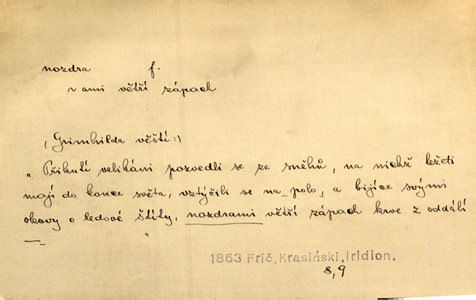 nozdra f.
r ami větří zápach
(Grimhilda věští:)
„Přikutí velikáni pozvedli se ze sněhů, na nichž ležeti
mají do konce světa, vztýčili se na polo, a bijíce svými
okovy o ledové štíty, nozdrami větří zápach krve z oddálí
— "
1863 Frič, Krasiński, Iridion.
8,9